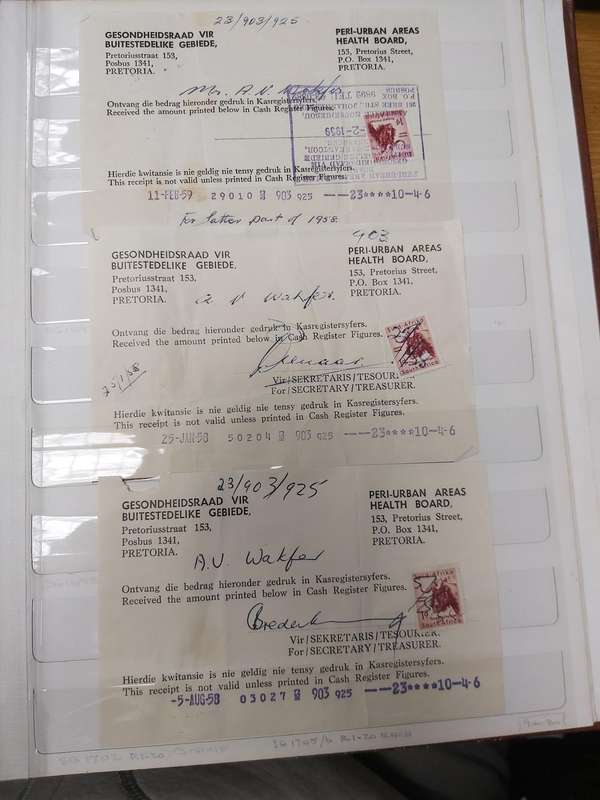 23/903/925
GESONDHEIDSRAAD VIR
BUITESTEDELIKE GEBIEDE,
Pretoriusstraat 153,
Posbus 1341,
PRETORIA.
PERI-URBAN AREAS
HEALTH BOARD,
153, Pretorius Street,
P.O. Box 1341,
PRETORIA.
Mr. A.V. Wakfer
Ontvang die bedrag hieronder gedruk in Kasregistersyfers.
Received the amount printed below in Cash Register Figures.
-2-1959
Hierdie kwitansie is nie geldig nie tensy gedruk in Kasregistersyfers.
This receipt is not valid unless printed in Cash Register Figures.
11-FEB-59 29010 903 925 ---23****10-4-6
For latter part of 1958
903
GESONDHEIDSRAAD VIR
BUITESTEDELIKE GEBIEDE,
Pretoriusstraat 153,
Posbus 1341,
PRETORIA.
PERI-URBAN AREAS
HEALTH BOARD,
153, Pretorius Street,
P.O. Box 1341,
PRETORIA.
Wakfer
Ontvang die bedrag hieronder gedruk in Kasregistersyfers.
Received the amount printed below in Cash Register Figures.
South Africa
25/1/58
Vir/SEKRETARIS/TESOU
For/SECRETARY/TREASURER.
Hierdie kwitansie is nie geldig nie tensy gedruk in Kasregistersyfers.
This receipt is not valid unless printed in Cash Register Figures.
25-JAN-58 50204 903 925 ---23****10-4-6
23/903/925
GESONDHEIDSRAAD VIR
BUITESTEDELIKE GEBIEDE,
Pretoriusstraat 153,
Posbus 1341,
PRETORIA.
PERI-URBAN AREAS
HEALTH BOARD,
153, Pretorius Street,
P.O. Box 1341,
PRETORIA.
A.V. Wakfer
Ontvang die bedrag hieronder gedruk in Kasregistersyfers.
Received the amount printed below in Cash Register Figures.
South Africa
Vir/SEKRETARIS/TESOURIER.
For/SECRETARY/TREASURER.
Hierdie kwitansie is nie geldig nie tensy gedruk in Kasregistersyfers.
This receipt is not valid unless printed in Cash Register Figures.
-5-AUG-58 03027 903 925 ---23****10-4-6